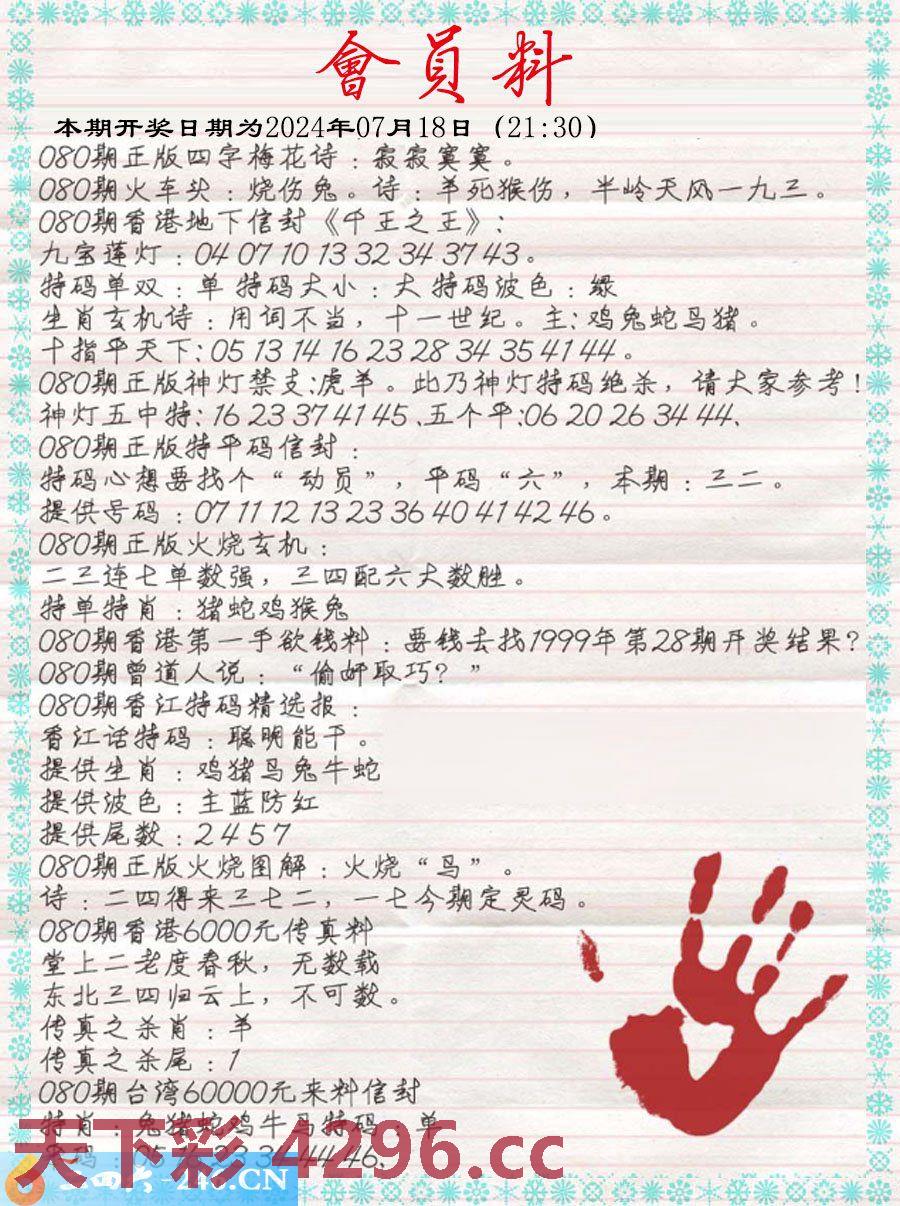 會員料
本期开奖日期为2024年07月18日（21:30）
080期正版四字梅花诗：寂寂寞寞。
080期火车头：烧伤兔。诗：羊死猴伤，半岭天风一九三。
080期香港地下信封《千王之王》：
九宝莲灯：04 07 10 13 32 34 37 43。
特码单双：单 特码大小：大 特码波色：绿
生肖玄机诗：用词不当，十一世纪。主：鸡兔蛇马猪。
十指平天下：05 13 14 16 23 28 34 35 41 44。
080期正版神灯禁支:虎羊。此乃神灯特码绝杀，请大家参考！
神灯五中特：16 23 37 41 45、五个平:06 20 26 34 44、
080期正版特平码信封：
特码心想要找个“动员”，平码“六”，本期：三二。
提供号码：07 11 12 13 23 36 40 41 42 46。
080期正版火烧玄机：
二三连七单数强，三四配六大数胜。
特单特肖：猪蛇鸡猴兔
080期香港第一手欲钱料：要钱去找1999年第28期开奖结果？
080期曾道人说：“偷奸取巧？”
080期香江特码精选报：
香江话特码：聪明能干。
提供生肖：鸡猪马兔牛蛇
提供波色：主蓝防红
提供尾数：2 4 5 7
080期正版火烧图解：火烧“鸟”。
诗：二四得来三七二，一七今期定灵码。
080期香港6000元传真料
堂上二老度春秋，无数载
东北三四归云上，不可数。
传真之杀肖：羊
传真之杀尾：1
080期台湾60000元来料信封
特肖：兔猪蛇鸡牛马特码：单
天下彩 4296.cc
二四六-246.CN